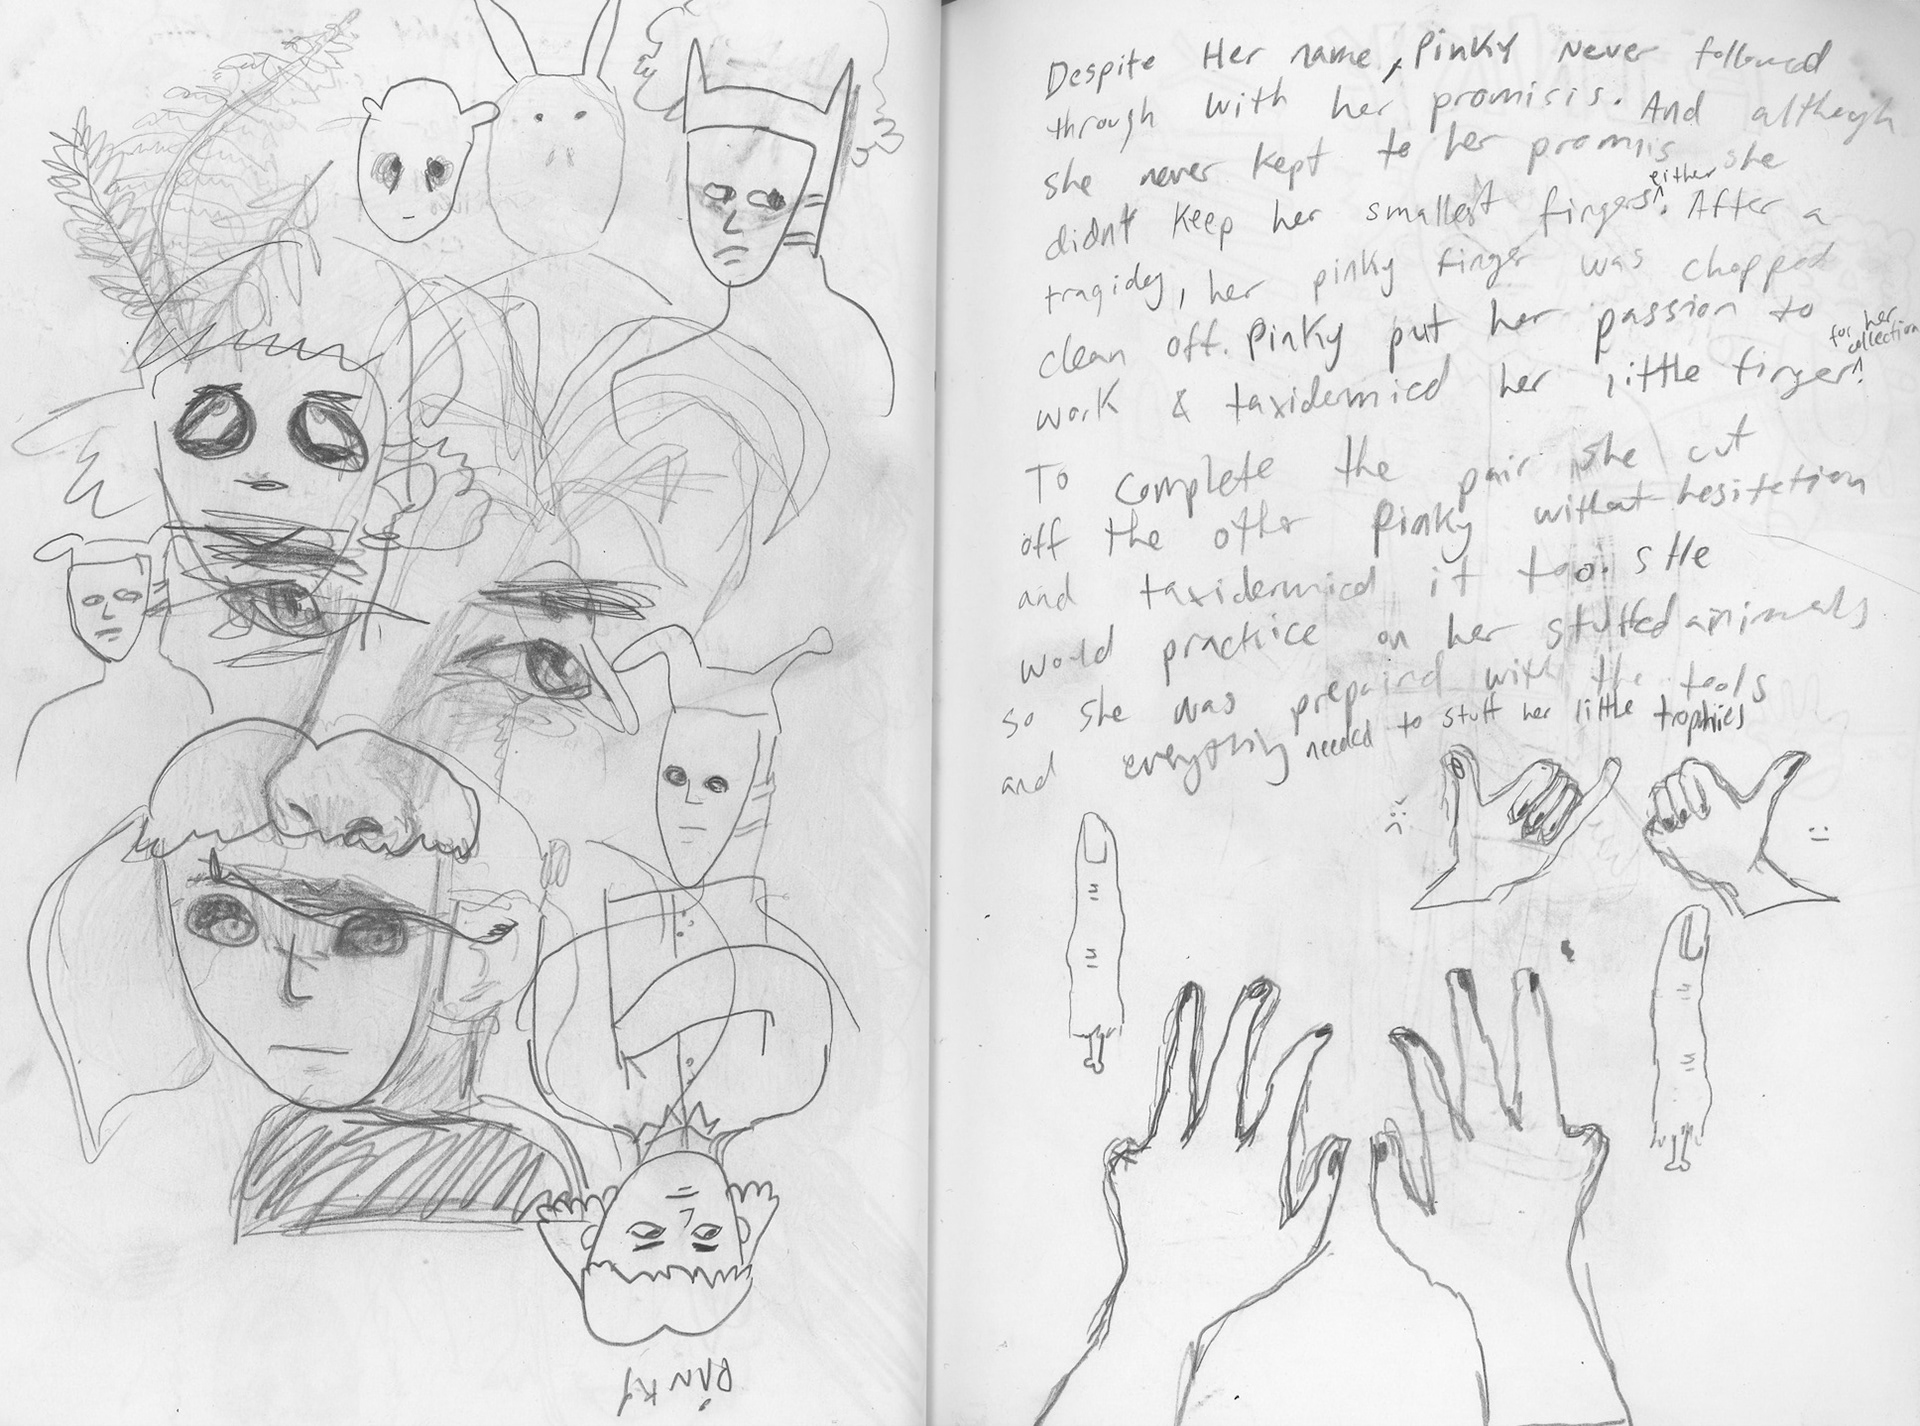 Despite Her name, Pinky Never followed
through with her promisis. And although
she never kept to her promis she
didnt keep her smallest fingers either. After a
tragidey, her pinky finger was chopped
clean off. Pinky put her passion to
work & taxidermied her little finger for her collection!
To complete the pair she cut
off the other Pinky without hesitetion
and taxidermied it too. sHe
would practice on her stuffed animals
so she was prepaired with the tools
and everything needed to stuff her little trophies
PINKY